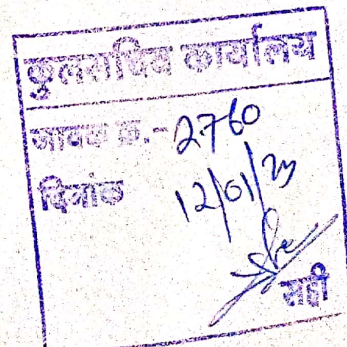 कुलसचिव कार्यालय
जावक क्र.-2760
दिनांक 12/01/23
सही